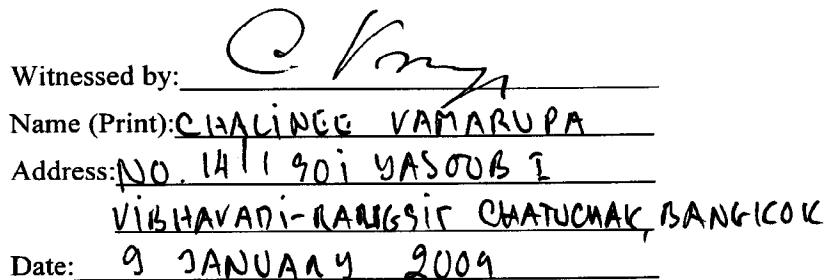 Witnessed by:
Name (Print): CHALINEE VAMARUPA
Address: NO. 14/1 SOI YASOOB I
VIBHAVADI-RANGSIT CHATUCHAK, BANGKOK
Date: 9 JANUARY 2009